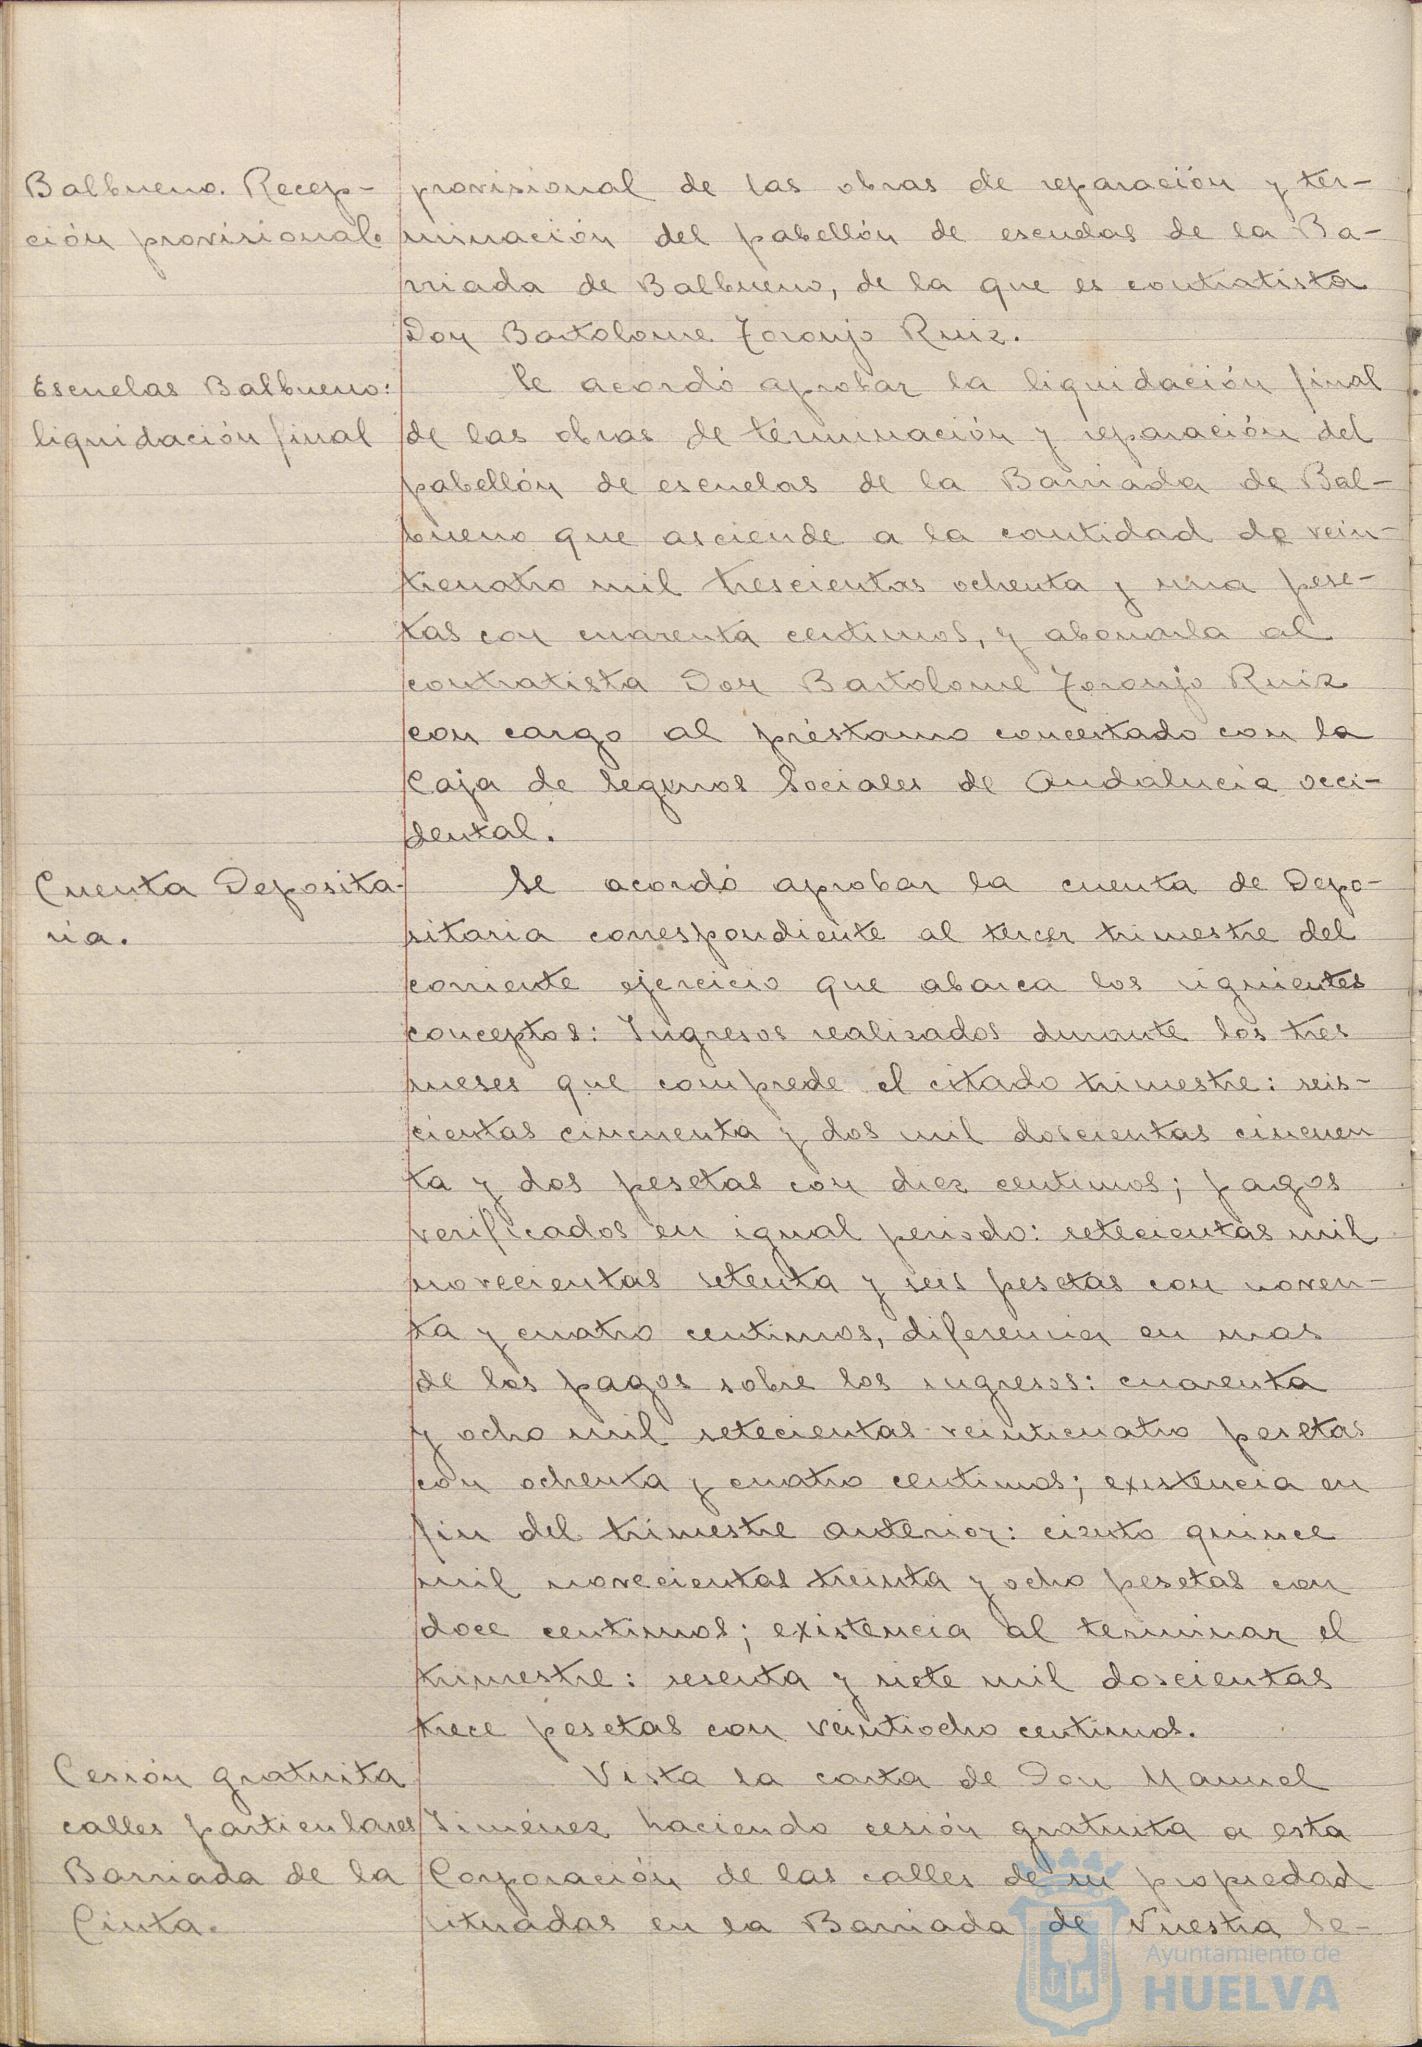 Balbueno. Recep-
ción provisional.
provisional de las obras de reparación y ter-
minación del pabellón de escuelas de la Ba-
rriada de Balbueno, de la que es contratista
Don Bartolome Toronjo Ruiz.
Escuelas Balbueno:
liquidación final
Se acordó aprobar la liquidación final
de las obras de terminación y reparación del
pabellón de escuelas de la Barriada de Bal-
bueno que asciende a la cantidad de vein-
ticuatro mil trescientas ochenta y una pese-
tas con cuarenta centimos, y abonarla al
contratista Don Bartolome Toronjo Ruiz
con cargo al préstamo concertado con la
Caja de Seguros Sociales de Andalucia occi-
dental.
Cuenta Deposita-
ria.
Se acordó aprobar la cuenta de Depo-
sitaria correspondiente al tercer trimestre del
corriente ejercicio que abarca los siguientes
conceptos: Ingresos realizados durante los tres
meses que comprede el citado trimestre: seis-
cientas cincuenta y dos mil doscientas cincuen
ta y dos pesetas con diez centimos; pagos
verificados en igual periodo: setecientas mil
novecientas setenta y seis pesetas con noven-
ta y cuatro centimos, diferencia en mas
de los pagos sobre los ingresos: cuarenta
y ocho mil setecientas veinticuatro pesetas
con ochenta y cuatro centimos; existencia en
fin del trimestre anterior: ciento quince
mil novecientas treinta y ocho pesetas con
doce centimos; existencia al terminar el
trimestre: sesenta y siete mil doscientas
trece pesetas con veintiocho centimos.
Cesión gratuita
calles particulares
Barriada de la
Cinta.
Vista la carta de Don Manuel
Jiménez haciendo cesión gratuita a esta
Corporación de las calles de su propiedad
situadas en la Barriada de Nuestra Se-
Ayuntamiento de
HUELVA